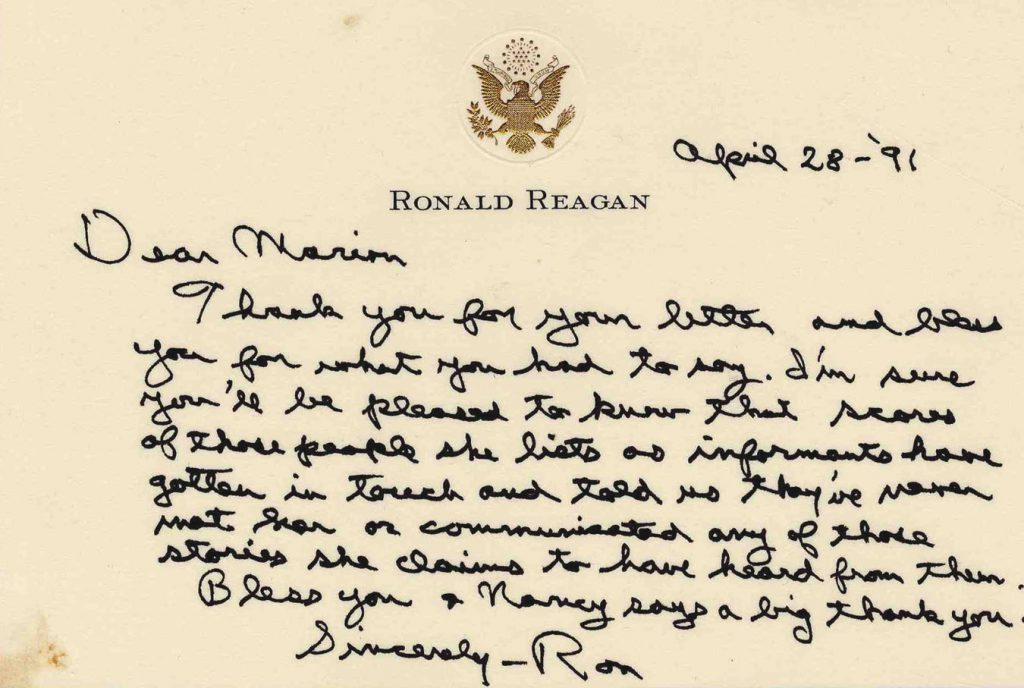 April 28-'91
RONALD REAGAN
Dear Marion
Thank you for your letter and bless
you for what you had to say. I'm sure
you'll be pleased to know that scores
of those people she lists as informants have
gotten in touch and told us they've never
met her or communicated any of those
stories she claims to have heard from them.
Bless you & Nancy says a big thank you.
Sincerely - Ron